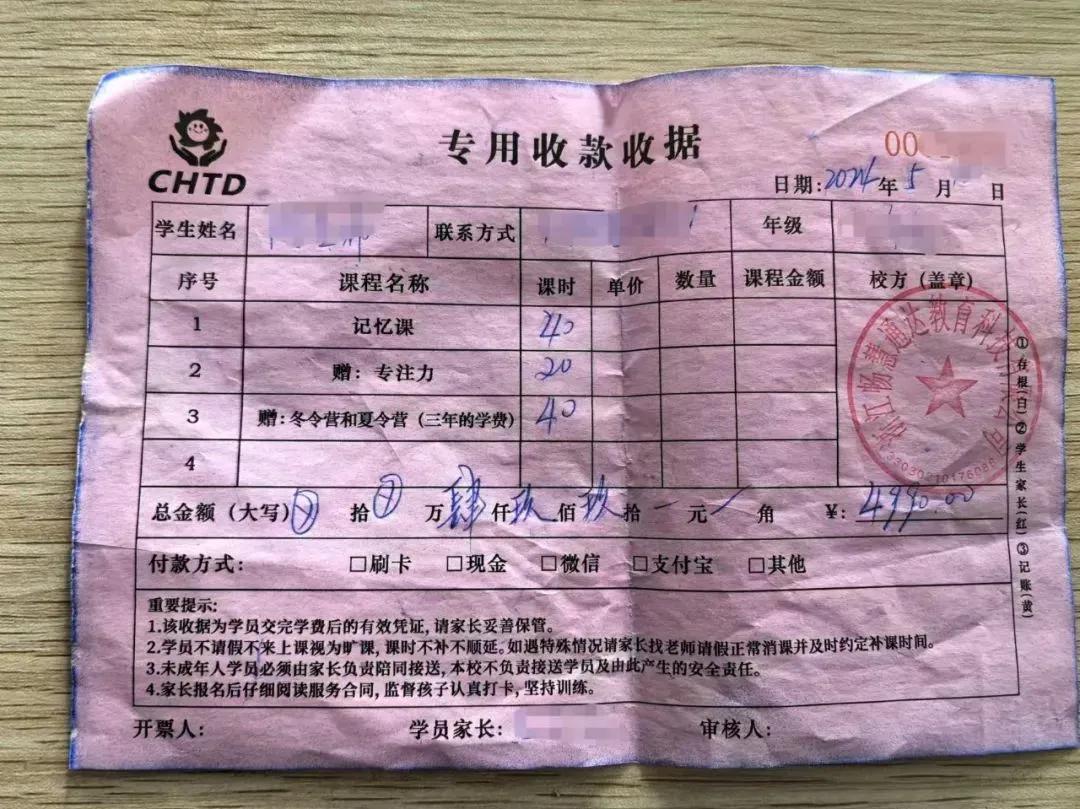 CHTD
专用收款收据
00
日期:2024年5月 日
学生姓名 联系方式 年级
序号 课程名称 课时 单价 数量 课程金额 校方(盖章)
1 记忆课 40
2 赠：专注力 20
3 赠:冬令营和夏令营(三年的学费) 40
4
浙江杨慧通达教育科技有限公司
总金额(大写) 拾 万肆仟玖佰玖拾 元 角 ¥: 4990.00
付款方式: □刷卡 □现金 □微信 □支付宝 □其他
重要提示:
1.该收据为学员交完学费后的有效凭证,请家长妥善保管。
2.学员不请假不来上课视为旷课,课时不补不顺延。如遇特殊情况请家长找老师请假正常消课并及时约定补课时间。
3.未成年人学员必须由家长负责陪同接送,本校不负责接送学员及由此产生的安全责任。
4.家长报名后仔细阅读服务合同,监督孩子认真打卡,坚持训练。
开票人: 学员家长: 审核人:
①存根(白)②学生家长(红)③记账(黄)